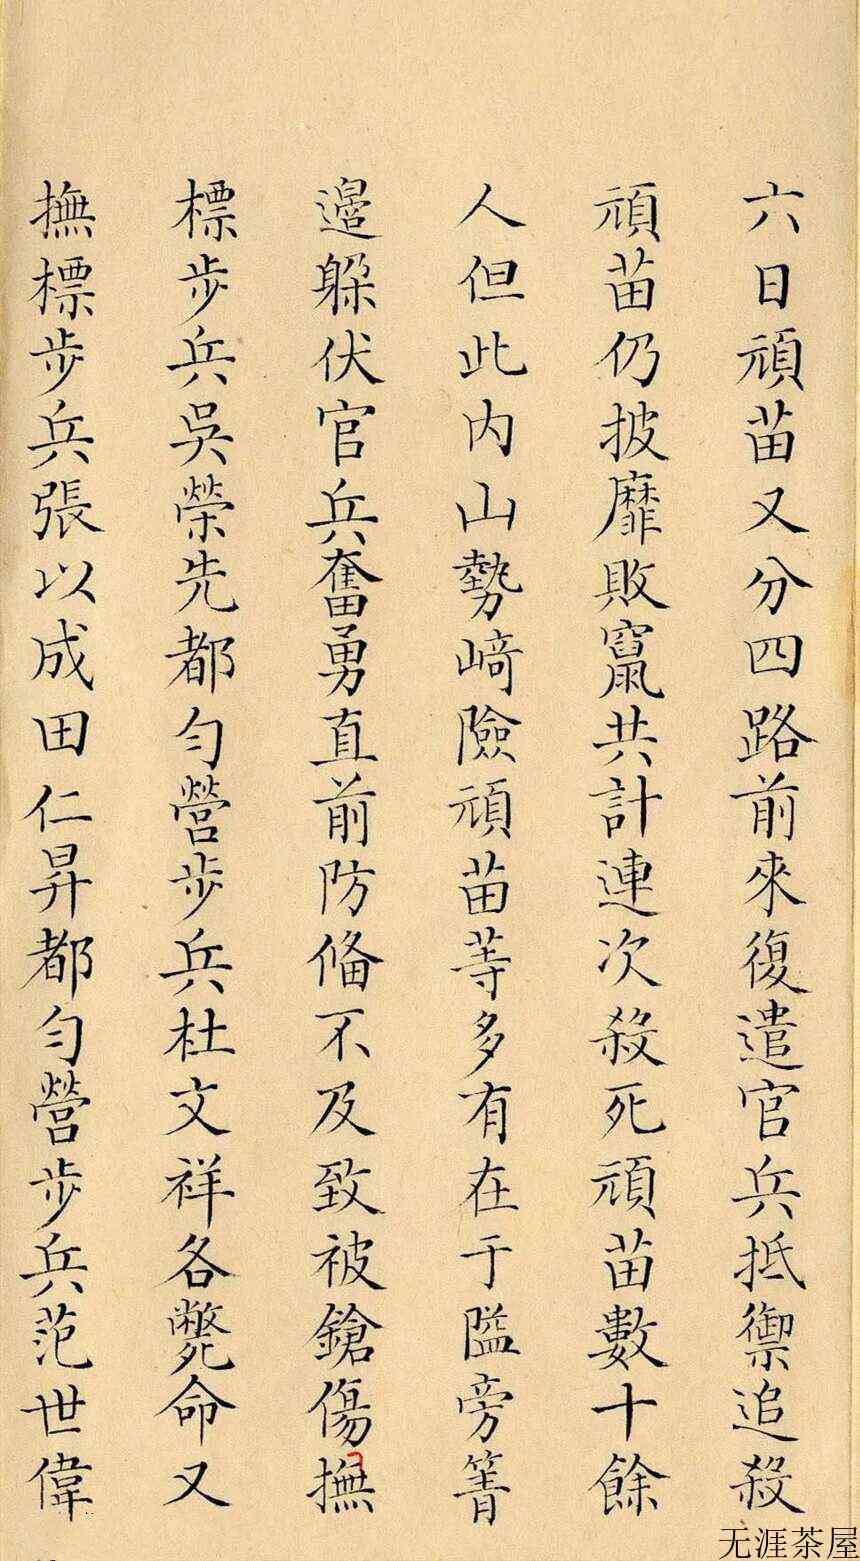 六日頑苗又分四路前來復遣官兵抵禦追殺
頑苗仍披靡敗竄共計連次殺死頑苗數十餘
人但此內山勢﨑險頑苗等多有在于隘旁箐
邉躲伏官兵奮勇直前防俻不及致被鎗傷撫
標步兵吳榮先都匀營步兵杜文祥各斃命又
撫標步兵張以成田仁昇都匀營步兵范世偉
无涯茶屋